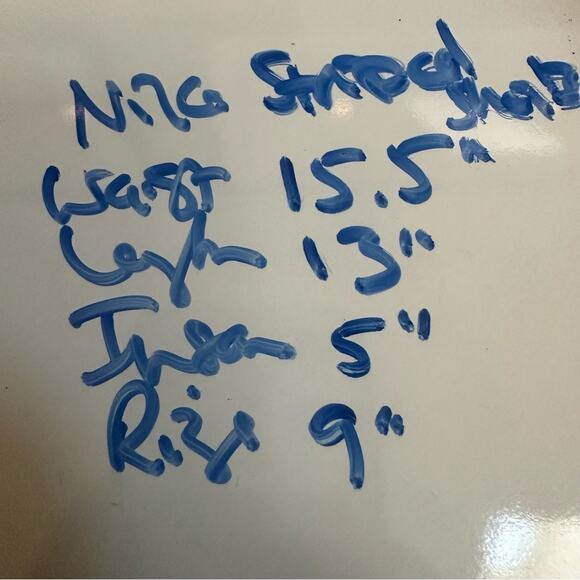 Nike Stride Short
Waist 15.5"
Length 13"
Inseam 5"
Rise 9"